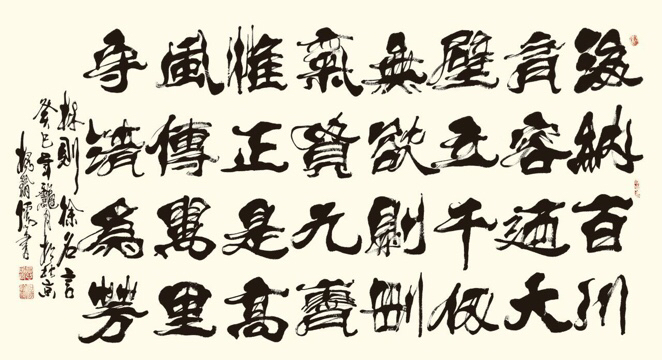 海納百川
有容迺大
壁立千仞
無欲則剛
氣貫九霄
惟正是高
風傳萬里
守清為芳
林則徐名言
癸巳年龍月於北京
書